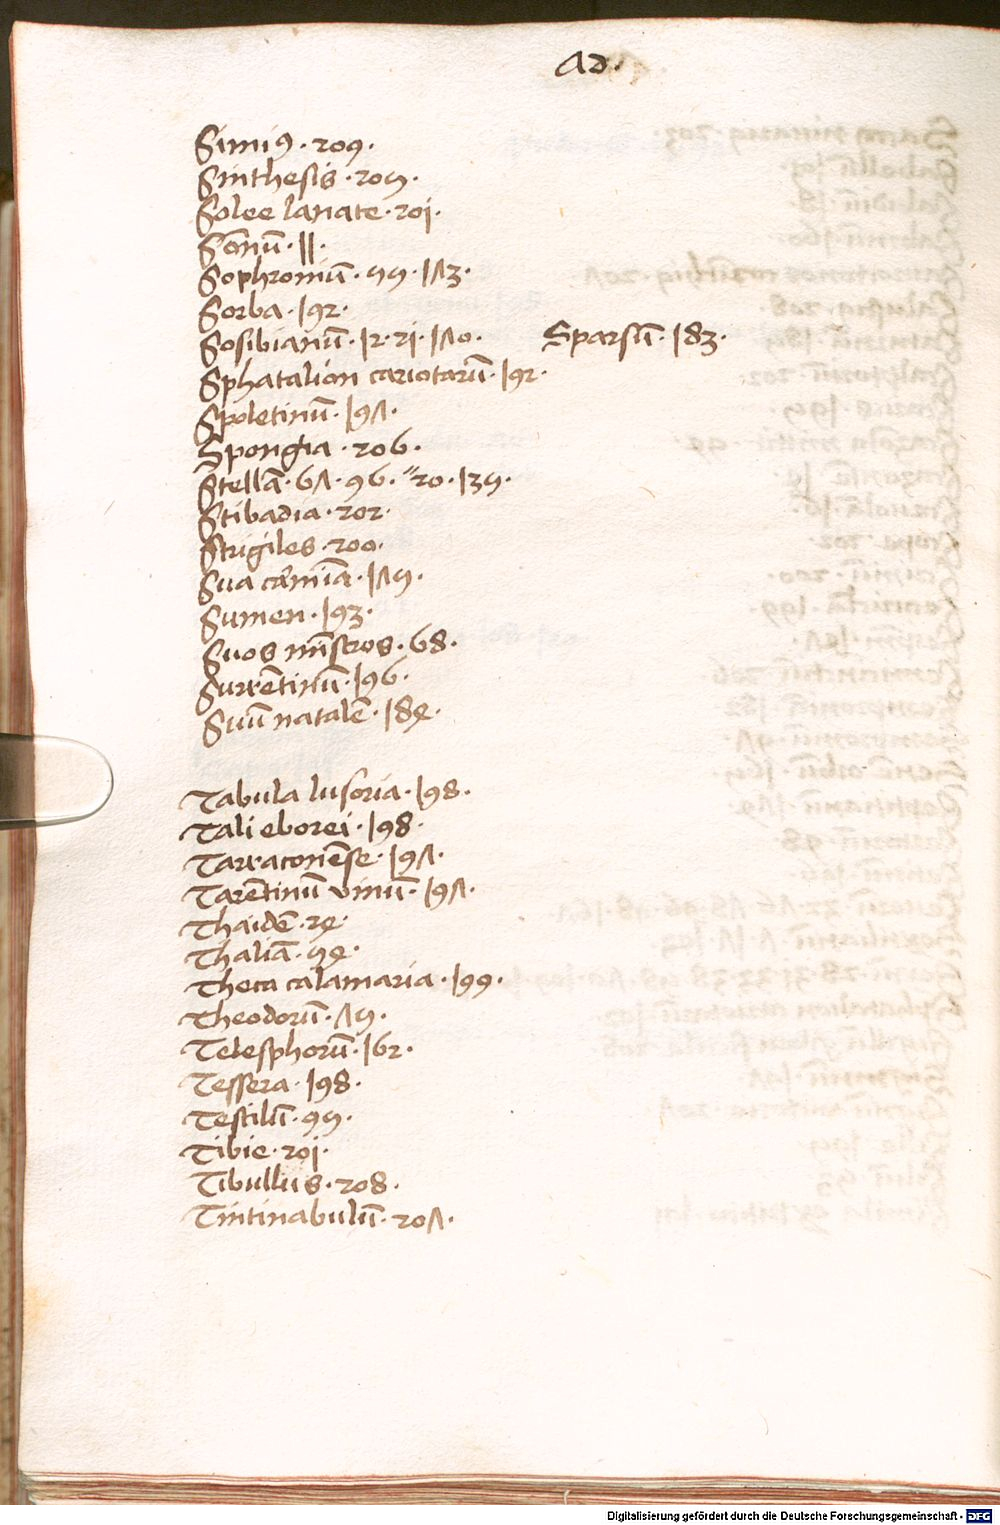 Ad.
Simiꝰ · 209 ·
Sinthesis · 205 ·
Solee lanate · 20i ·
Sōnū · 11 ·
Sophronium̄ · 55 · 173 ·
Sorba · 192 ·
Sosibianū · 12 · 2i · 170 · Sparsū · 183 ·
Sphatalion cariotarū · 192 ·
Spoletinū · 197 ·
Spongia · 206 ·
Stellā · 67 · 96 · 120 · 135 ·
Stibadia · 202 ·
Strigiles · 200 ·
Sua carmīa · 175 ·
Sumen · 193 ·
Suos mīstros · 68 ·
Surrētinū · 196 ·
Suū natalē · 184 ·
Tabula lusoria · 198 ·
Tali eborei · 198 ·
Tarraconēse · 197 ·
Tarētinū vinū · 197 ·
Thaidē · 24 ·
Thaliā · 54 ·
Theca calamaria · 199 ·
Theodorū · 75 ·
Telesphorū · 162 ·
Tessera · 198 ·
Testilū · 95 ·
Tibie · 20i ·
Tibullus · 208 ·
Tintinabulū · 207 ·
Digitalisierung gefördert durch die Deutsche Forschungsgemeinschaft - DFG